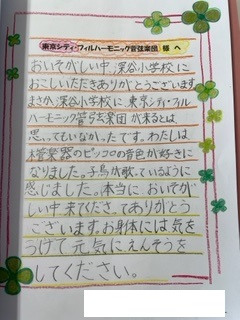 東京シティ・フィルハーモニック管弦楽団 様 へ
おいそがしい中、深谷小学校に
おこしいただきありがとうございます。
まさか、深谷小学校に 東京シティ・フィル
ハーモニック管弦楽団 が来るとは
思ってもいなかったです。わたしは
木管楽器のピッコロの音色が好きに
なりました。子鳥が歌っているように
感じました。本当に おいそが
しい中 来てくださってありがとう
ございます。お身体には 気を
つけて 元気に えんそうを
してください。